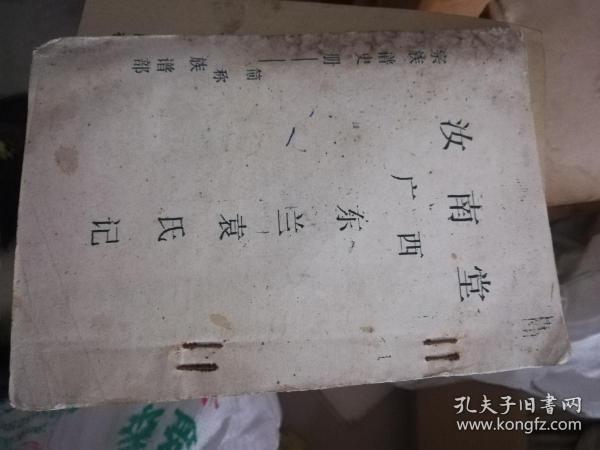 汝南堂
广西
东兰袁氏记
宗族谱史册——简称族谱部
孔夫子旧书网
www.kongfz.com